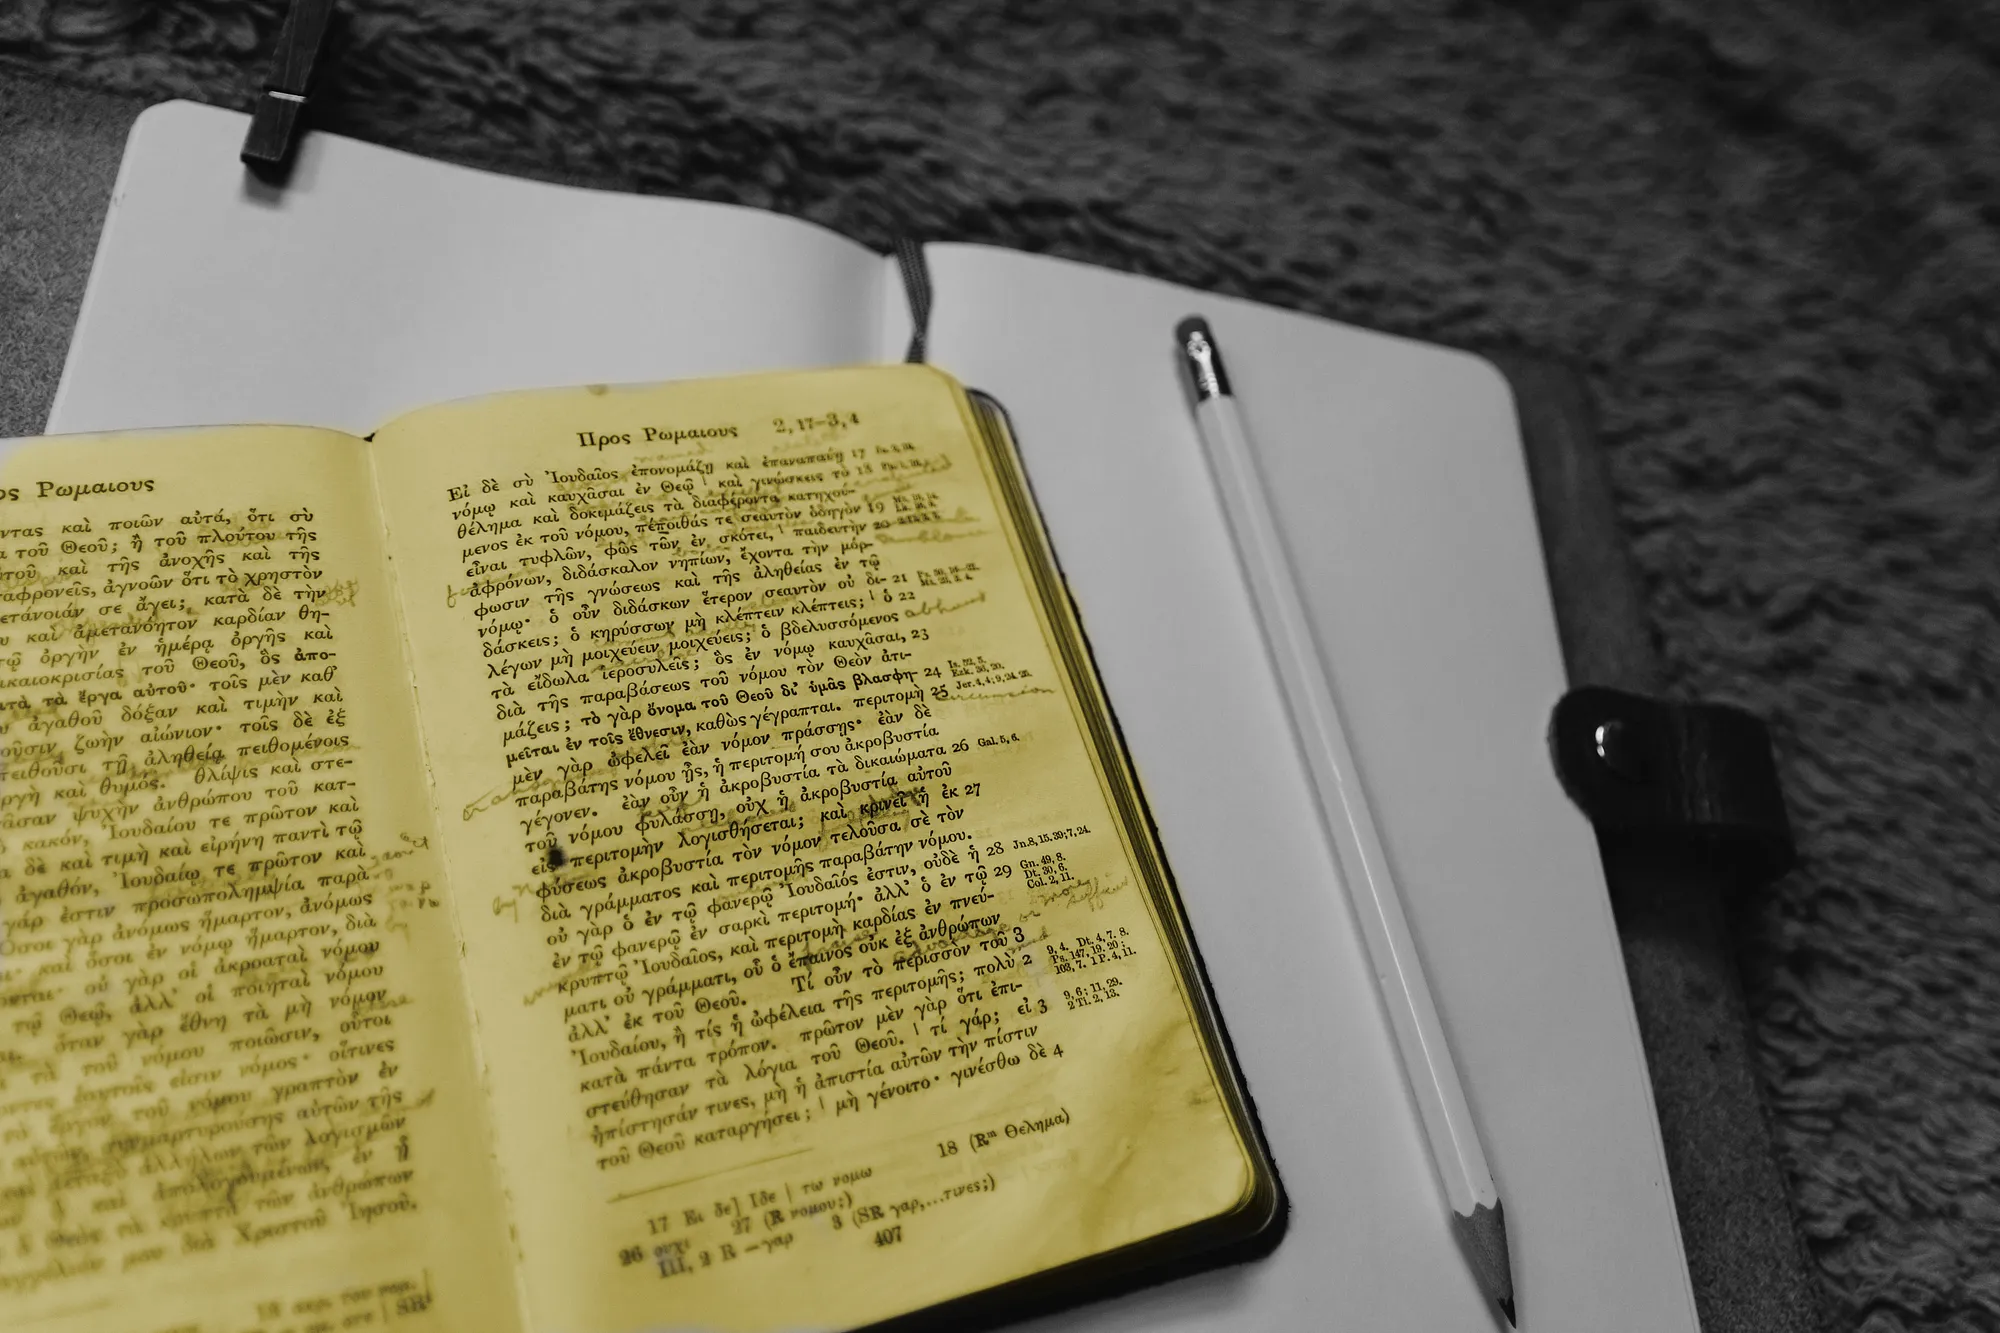 ος Ρωμαιους
ντας καὶ ποιῶν αὐτά, ὅτι σὺ
τοῦ Θεοῦ; ἢ τοῦ πλούτου τῆς
τοῦ καὶ τῆς ἀνοχῆς καὶ τῆς
ταφρονεῖς, ἀγνοῶν ὅτι τὸ χρηστὸν
ετάνοιάν σε ἄγει; κατὰ δὲ τὴν
υ καὶ ἀμετανόητον καρδίαν θη-
ὀργὴν ἐν ἡμέρᾳ ὀργῆς καὶ
ικαιοκρισίας τοῦ Θεοῦ, ὃς ἀπο-
ατὰ τὰ ἔργα αὐτοῦ· τοῖς μὲν καθ’
ἀγαθοῦ δόξαν καὶ τιμὴν καὶ
οῦσιν, ζωὴν αἰώνιον· τοῖς δὲ ἐξ
πειθοῦσι τῇ ἀληθείᾳ πειθομένοις
ργὴ καὶ θυμός. θλίψις καὶ στε-
ᾶσαν ψυχὴν ἀνθρώπου τοῦ κατ-
κακόν, Ἰουδαίου τε πρῶτον καὶ
δὲ καὶ τιμὴ καὶ εἰρήνη παντὶ τῷ
ἀγαθόν, Ἰουδαίῳ τε πρῶτον καὶ
γάρ ἐστιν προσωπολημψία παρὰ
Ὅσοι γὰρ ἀνόμως ἥμαρτον, ἀνόμως
καὶ ὅσοι ἐν νόμῳ ἥμαρτον, διὰ
οὐ γὰρ οἱ ἀκροαταὶ νόμου
τῷ Θεῷ, ἀλλ’ οἱ ποιηταὶ νόμου
ὅταν γὰρ ἔθνη τὰ μὴ νόμον
τὰ τοῦ νόμου ποιῶσιν, οὗτοι
ἑαυτοῖς εἰσιν νόμος· οἵτινες
τὸ ἔργον τοῦ νόμου γραπτὸν ἐν
συμμαρτυρούσης αὐτῶν τῆς
μεταξὺ ἀλλήλων τῶν λογισμῶν
ἢ καὶ ἀπολογουμένων, ἐν ᾗ
ὁ Θεὸς τὰ κρυπτὰ τῶν ἀνθρώπων
μου διὰ Χριστοῦ Ἰησοῦ.
Προς Ρωμαιους 2, 17–3, 4
Εἰ δὲ σὺ Ἰουδαῖος ἐπονομάζῃ καὶ ἐπαναπαύῃ 17
νόμῳ καὶ καυχᾶσαι ἐν Θεῷ | καὶ γινώσκεις τὸ 18
θέλημα καὶ δοκιμάζεις τὰ διαφέροντα κατηχού-
μενος ἐκ τοῦ νόμου, πέποιθάς τε σεαυτὸν ὁδηγὸν 19
εἶναι τυφλῶν, φῶς τῶν ἐν σκότει, | παιδευτὴν 20
ἀφρόνων, διδάσκαλον νηπίων, ἔχοντα τὴν μόρ-
φωσιν τῆς γνώσεως καὶ τῆς ἀληθείας ἐν τῷ
νόμῳ· ὁ οὖν διδάσκων ἕτερον σεαυτὸν οὐ δι- 21
δάσκεις; ὁ κηρύσσων μὴ κλέπτειν κλέπτεις; | ὁ 22
λέγων μὴ μοιχεύειν μοιχεύεις; ὁ βδελυσσόμενος
τὰ εἴδωλα ἱεροσυλεῖς; ὃς ἐν νόμῳ καυχᾶσαι, 23
διὰ τῆς παραβάσεως τοῦ νόμου τὸν Θεὸν ἀτι-
μάζεις; τὸ γὰρ ὄνομα τοῦ Θεοῦ δι’ ὑμᾶς βλασφη- 24 Is. 52, 5. Ezk. 36, 20.
μεῖται ἐν τοῖς ἔθνεσιν, καθὼς γέγραπται. περιτομὴ 25 Jer. 4, 4; 9, 24. 25.
μὲν γὰρ ὠφελεῖ ἐὰν νόμον πράσσῃς· ἐὰν δὲ
παραβάτης νόμου ᾖς, ἡ περιτομή σου ἀκροβυστία
γέγονεν. ἐὰν οὖν ἡ ἀκροβυστία τὰ δικαιώματα 26 Gal. 5, 6.
τοῦ νόμου φυλάσσῃ, οὐχ ἡ ἀκροβυστία αὐτοῦ
εἰς περιτομὴν λογισθήσεται; καὶ κρινεῖ ἡ ἐκ 27
φύσεως ἀκροβυστία τὸν νόμον τελοῦσα σὲ τὸν
διὰ γράμματος καὶ περιτομῆς παραβάτην νόμου.
οὐ γὰρ ὁ ἐν τῷ φανερῷ Ἰουδαῖός ἐστιν, οὐδὲ ἡ 28 Jn. 8, 15. 39; 7, 24.
ἐν τῷ φανερῷ ἐν σαρκὶ περιτομή· ἀλλ’ ὁ ἐν τῷ 29 Gn. 49, 8. Dt. 30, 6. Col. 2, 11.
κρυπτῷ Ἰουδαῖος, καὶ περιτομὴ καρδίας ἐν πνεύ-
ματι οὐ γράμματι, οὗ ὁ ἔπαινος οὐκ ἐξ ἀνθρώπων
ἀλλ’ ἐκ τοῦ Θεοῦ. Τί οὖν τὸ περισσὸν τοῦ 3
Ἰουδαίου, ἢ τίς ἡ ὠφέλεια τῆς περιτομῆς; πολὺ 2 9, 4. Dt. 4, 7. 8. Ps. 147, 19. 20; 103, 7. 1 P. 4, 11.
κατὰ πάντα τρόπον. πρῶτον μὲν γὰρ ὅτι ἐπι-
στεύθησαν τὰ λόγια τοῦ Θεοῦ. | τί γάρ; εἰ 3 9, 6; 11, 29. 2 Ti. 2, 13.
ἠπίστησάν τινες, μὴ ἡ ἀπιστία αὐτῶν τὴν πίστιν
τοῦ Θεοῦ καταργήσει; | μὴ γένοιτο· γινέσθω δὲ 4
17 Ει δε] Ιδε | τω νομω 18 (Rᵐ Θελημα)
26 ουχι 27 (R νομου;)
III, 2 R – γαρ 3 (SR γαρ,...τινες;)
407